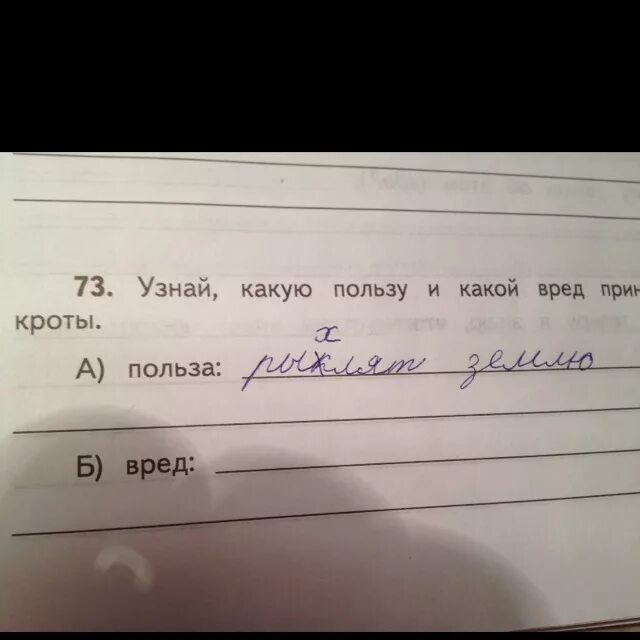 73. Узнай, какую пользу и какой вред прин
кроты.
х
А) польза: рыклят землю
Б) вред: